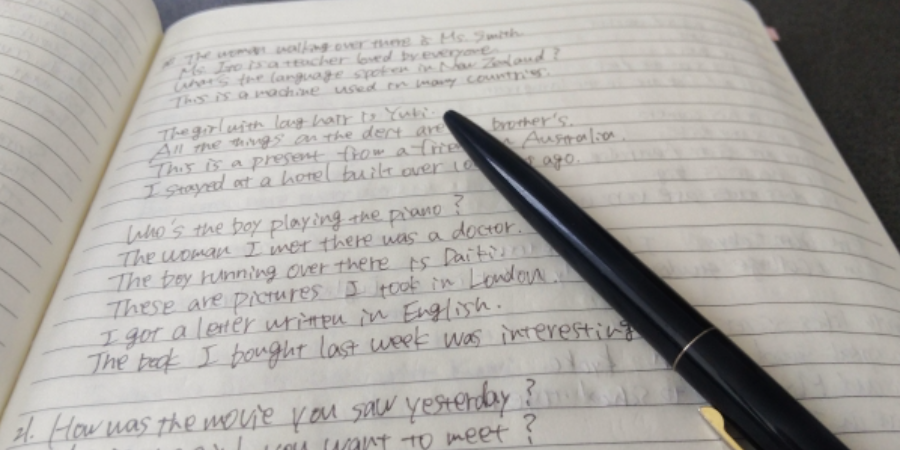 The woman walking over there is Ms. Smith.
Ms. Ito is a teacher loved by everyone.
What's the language spoken in New Zealand?
This is a machine used in many countries.
The girl with long hair is Yuki.
All the things on the are brother's.
This is a present from a Australia.
I stayed at a hotel built over ago.
Who's the boy playing the piano?
The woman I met there was a doctor.
The boy running over there is Daiki.
These are pictures I took in London.
I got a letter written in English.
The book I bought last week was interesting
21. How was the movie you saw yesterday?
you want to meet?